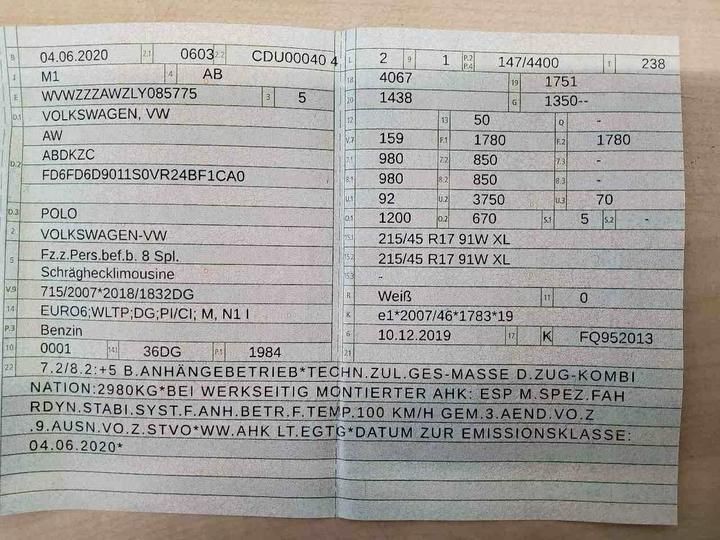 B 04.06.2020 2.1 0603 2.2 CDU00040 4
J M1 4 AB
E WVWZZZAWZLY085775 3 5
D.1 VOLKSWAGEN, VW
AW
D.2 ABDKZC
FD6FD6D9011S0VR24BF1CA0
D.3 POLO
2 VOLKSWAGEN-VW
5 Fz.z.Pers.bef.b. 8 Spl.
Schräghecklimousine
V.9 715/2007*2018/1832DG
14 EURO6;WLTP;DG;PI/CI; M, N1 I
P.3 Benzin
10 0001 14.1 36DG P.1 1984
L 2 9 1 P.2 P.4 147/4400 T 238
18 4067 19 1751
20 1438 G 1350--
12 13 50 Q -
V.7 159 F.1 1780 F.2 1780
7.1 980 7.2 850 7.3 -
8.1 980 8.2 850 8.3 -
U.1 92 U.2 3750 U.3 70
O.1 1200 O.2 670 S.1 5 S.2 -
15.1 215/45 R17 91W XL
15.2 215/45 R17 91W XL
15.3 -
R Weiß 11 0
K e1*2007/46*1783*19
6 10.12.2019 17 K FQ952013
21
22 7.2/8.2:+5 B.ANHÄNGEBETRIEB*TECHN.ZUL.GES-MASSE D.ZUG-KOMBI
NATION:2980KG*BEI WERKSEITIG MONTIERTER AHK: ESP M.SPEZ.FAH
RDYN.STABI.SYST.F.ANH.BETR.F.TEMP.100 KM/H GEM.3.AEND.VO.Z
.9.AUSN.VO.Z.STVO*WW.AHK LT.EGTG*DATUM ZUR EMISSIONSKLASSE:
04.06.2020*